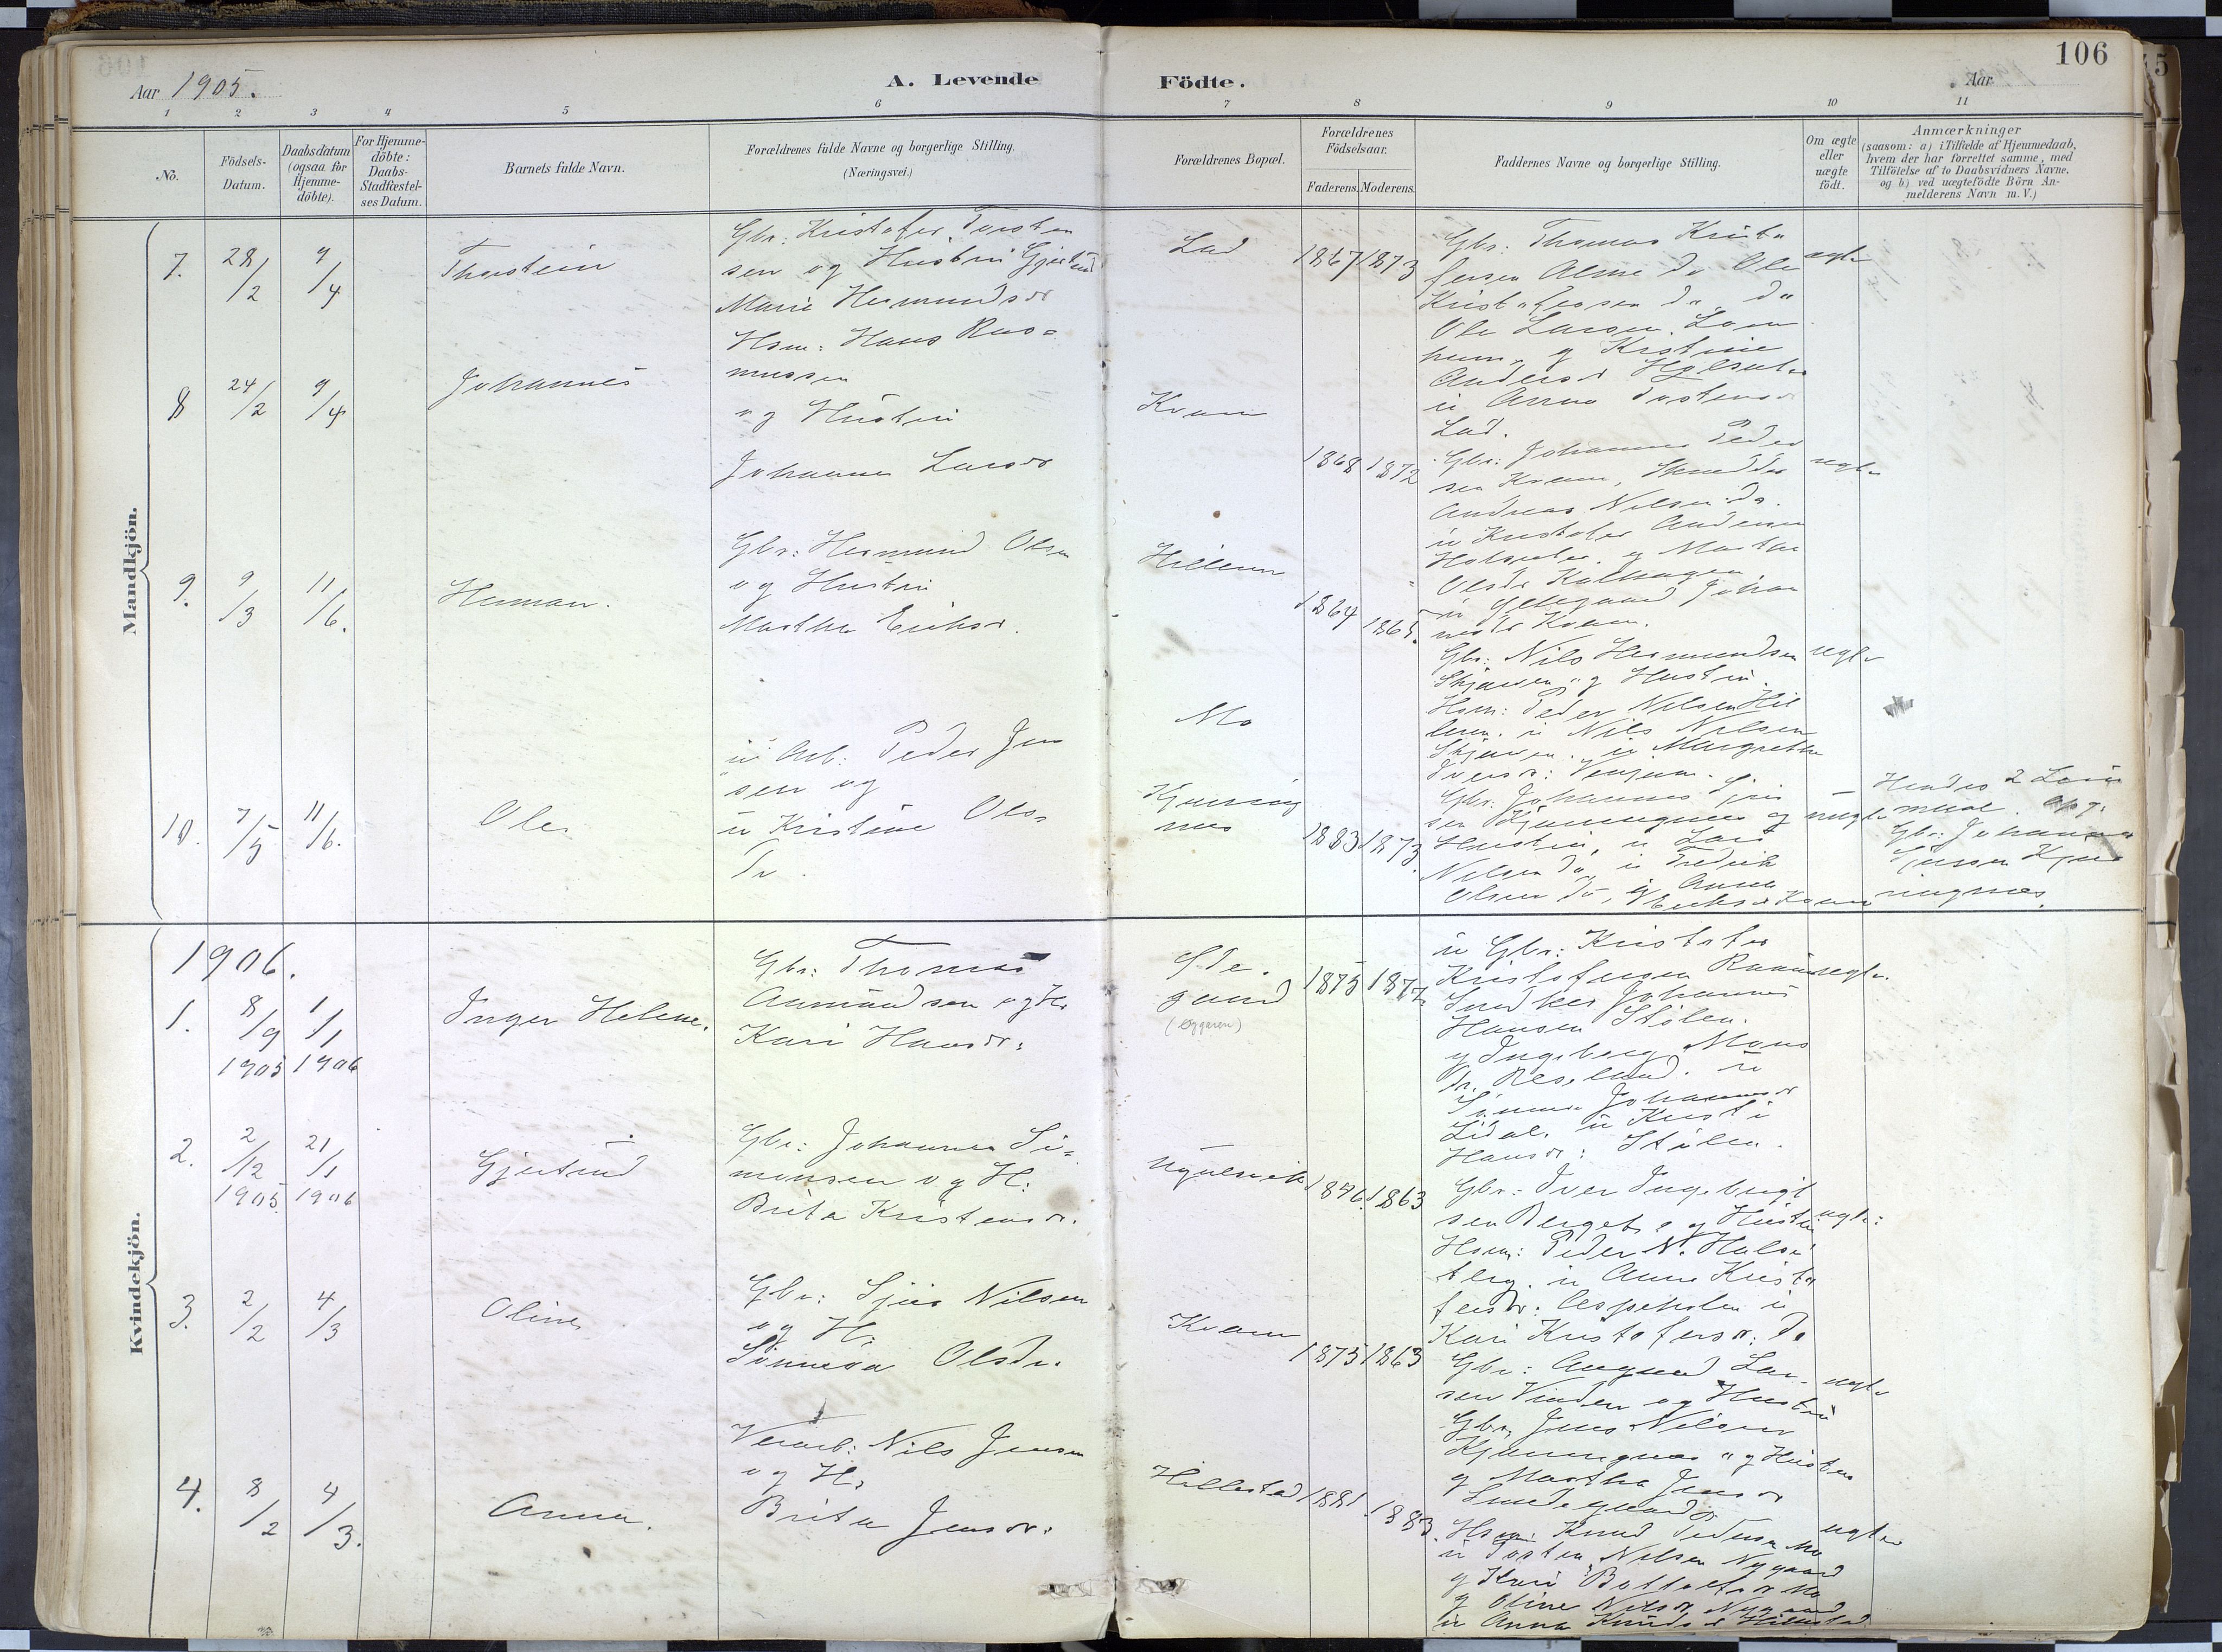 106
Aar 1905.
A. Levende Födte.
Aar
1 2 3 4 5 6 7 8 9 10 11
No.
Födsels-Datum.
Daabsdatum (ogsaa for Hjemme-döbte).
For Hjemme-döbte: Daabs-Stadfæstel-ses Datum.
Barnets fulde Navn.
Forældrenes fulde Navne og borgerlige Stilling.
(Næringsvei.)
Forældrenes Bopæl.
Forældrenes Födselsaar.
Faderens. Moderens.
Faddernes Navne og borgerlige Stilling.
Om ægte eller uægte födt.
Anmærkninger
(saasom: a) i Tilfælde af Hjemmedaab, hvem der har forrettet samme, med Tilföielse af to Daabsvidners Navne. og b) ved uægtefödte Börn An-melderens Navn m. V.)
Mandkjön.
7. 28/2 9/4 Thorstein
Gbr: Kristofer Torsten
sen og Hustru Gjertrud
Marie Hermundsdr
Lad 1867 1873
Gbr: Thomas Kristo
fersen Alme do Ole
Kristofersen do do
Ole Larsen
og Kristine
Andersdr
u Anna Tostensdr
Lad.
ægte
8 24/2 9/4 Johannes
Hsm: Hans Ras=
mussen
og Hustru
Johanne Larsdr
Kvam 1868 1872
Gbr: Johannes Peder
sen Kvam,
Andreas Nilsen do.
u Kristofer Andersen
og Martha
Olsdr
Johan
nesdr Kvam.
ægte
9. 9/3 11/6. Herman.
Gbr: Hermund Olsen
og Hustru
Martha Eriksdr.
Hillern 1864 1865.
Gbr: Nils Hermundsen
Skjerven og Hustru.
Hsm: Peder Nilsen Hil
lern. u Nils Nilsen
Skjerven. u Margretha
Iversdr: Venjum.
ægte
10. 7/5 11/6. Ole
u Arb: Peder Jen
sen og
u Kristine Ols=
dr.
Mo
Kjørring
nes
1883 1873.
Gbr: Johannes Sjur
sen Kjørringnes og
Hustru, u Lars
Nilsen do, u Fredrik
Olsen do, og Anna
Eriksdr Kvam
uægte
Hendes 2 Leier
maal. Opg.
Gbr: Johannes
Sjursen Kjør
ringnes.
Kvindekjön.
1906.
1. 8/9 1905 1/1 1906 Inger Helene.
Gbr: Thomas
Aamundsen og H.
Kari Hansdr:
Øde.
gaard
(Øygaren)
1875 1877
u Gbr: Kristofer
Kristofersen
Snedker Johannes
Hansen Stølen.
og Ingeborg Mons
dr. u
Johannesdr
Lidal. u Kristi
Hansdr: Stølen.
ægte.
2. 2/12 1905. 21/1 1906 Gjertrud
Gbr: Johannes Si=
monsen og H:
Brita Kristensdr.
Nyulvik 1876. 1863
Gbr: Iver Ingebrigt
sen Berget og Hustru
Hsm: Peder N. Hals
berg. u Anna Kristo
fersdr: Espeholen u
Kari Kristofersdr: do
ægte:
3. 2/2 4/3 Oline
Gbr: Sjur Nilsen
og H:
Sønneva Olsdr.
Kvam 1875 1863
Gbr: Aagaard Lar.
sen Vinden og Hustru
Gbr, Jens Nilsen
Kjørringnes og Hustru
og Martha Jensdr
Smedegaard
ægte
4. 8/2 4/3. Anna.
Vexarb: Nils Jensen
og H:
Brita Jensdr:
Hillestad 1881. 1883.
Hsm: Knud Pedersen Mo
u Tosten Nilsen Nygaard
og Kari Botolfsdr Mo
og Oline Nilsdr Nygaard
u Anna Knudsdr Hillestad
ægte